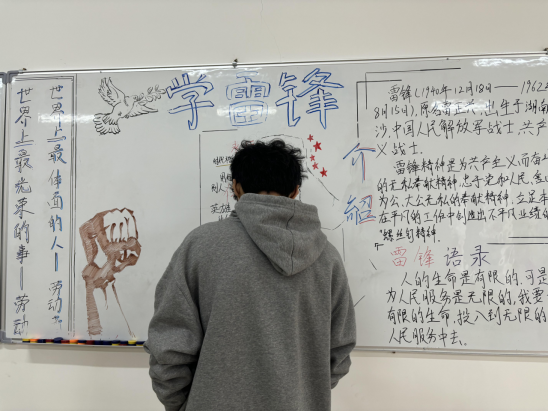 学雷锋
世界上最体面的人—劳动
世界上最光荣的事—劳动
介绍
雷锋(1940年12月18日——1962
8月15日),原名雷正兴,出生于湖南
沙,中国人民解放军战士,共产
义战士.
雷锋精神是为共产主义而有
的无私奉献精神,忠于党和人民,舍
为公,大公无私的奉献精神,立足本
在平凡的工作中创造出不平凡业绩的
"螺丝钉精神.
雷锋语录
人的生命是有限的.可是
为人民服务是无限的,我要
有限的生命,投入到无限的
人民服务中去.